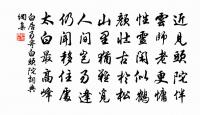 近見頭陀伴
雲師老更慵
性靈閑似鶴
顏狀古於松
山里猶難覓
人間豈易逢
仍聞移住處
太白最高峰
白居易寄白頭陀詞典
網集